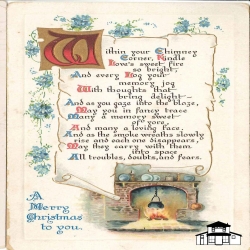 Within your Chimney
Corner, Kindle
Love's sweet fire
so bright;
And every Log your
memory jog
With thoughts that
bring delight—
And as you gaze into the blaze,
May you in fancy trace
Many a memory sweet
of yore
And many a loving face,
And as the smoke wreaths slowly
rise and each one disappears,
May they carry with them
into space
All troubles, doubts, and fears.
A
Merry
Christmas
to you.